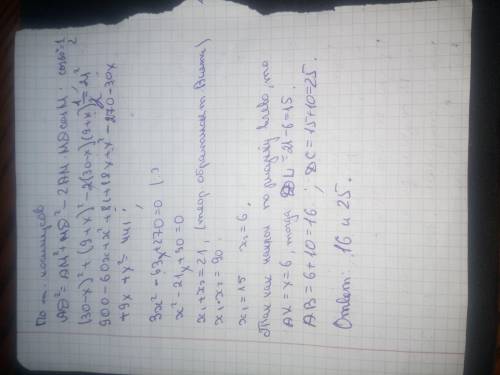 По т. косинусов
AD² = AM² + MD² - 2AM · MD cos M ; cos 60° = 1/2
(30-x)² + (9+x)² - 2(30-x)(9+x) 1/2 = 21²
900 - 60x + x² + 81 + 18x + x² - 270 - 30x
+9x + x² = 441 ;
3x² - 63x + 270 = 0 | :3
x² - 21x + 90 = 0
x₁ + x₂ = 21, (теор. обратная т. Виета)
x₁ · x₂ = 90.
x₁ = 15 x₂ = 6,
Так как наклон по рисунку влево, то
AK = x = 6, тогда DL = 21 - 6 = 15.
AB = 6 + 10 = 16 ; DC = 15 + 10 = 25.
Ответ: 16 и 25.